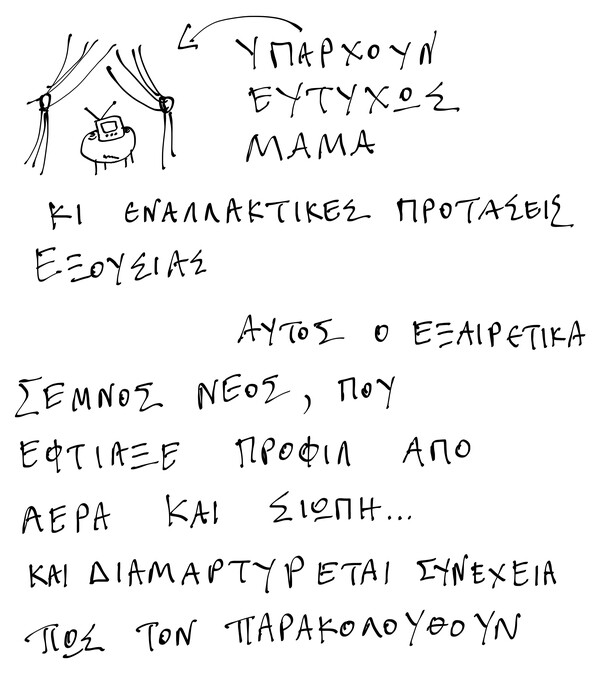 ΥΠΑΡΧΟΥΝ
ΕΥΤΥΧΩΣ
ΜΑΜΑ
ΚΙ ΕΝΑΛΛΑΚΤΙΚΕΣ ΠΡΟΤΑΣΕΙΣ
ΕΞΟΥΣΙΑΣ
ΑΥΤΟΣ Ο ΕΞΑΙΡΕΤΙΚΑ
ΣΕΜΝΟΣ ΝΕΟΣ, ΠΟΥ
ΕΦΤΙΑΞΕ ΠΡΟΦΙΛ ΑΠΟ
ΑΕΡΑ ΚΑΙ ΣΙΩΠΗ...
ΚΑΙ ΔΙΑΜΑΡΤΥΡΕΤΑΙ ΣΥΝΕΧΕΙΑ
ΠΩΣ ΤΟΝ ΠΑΡΑΚΟΛΟΥΘΟΥΝ